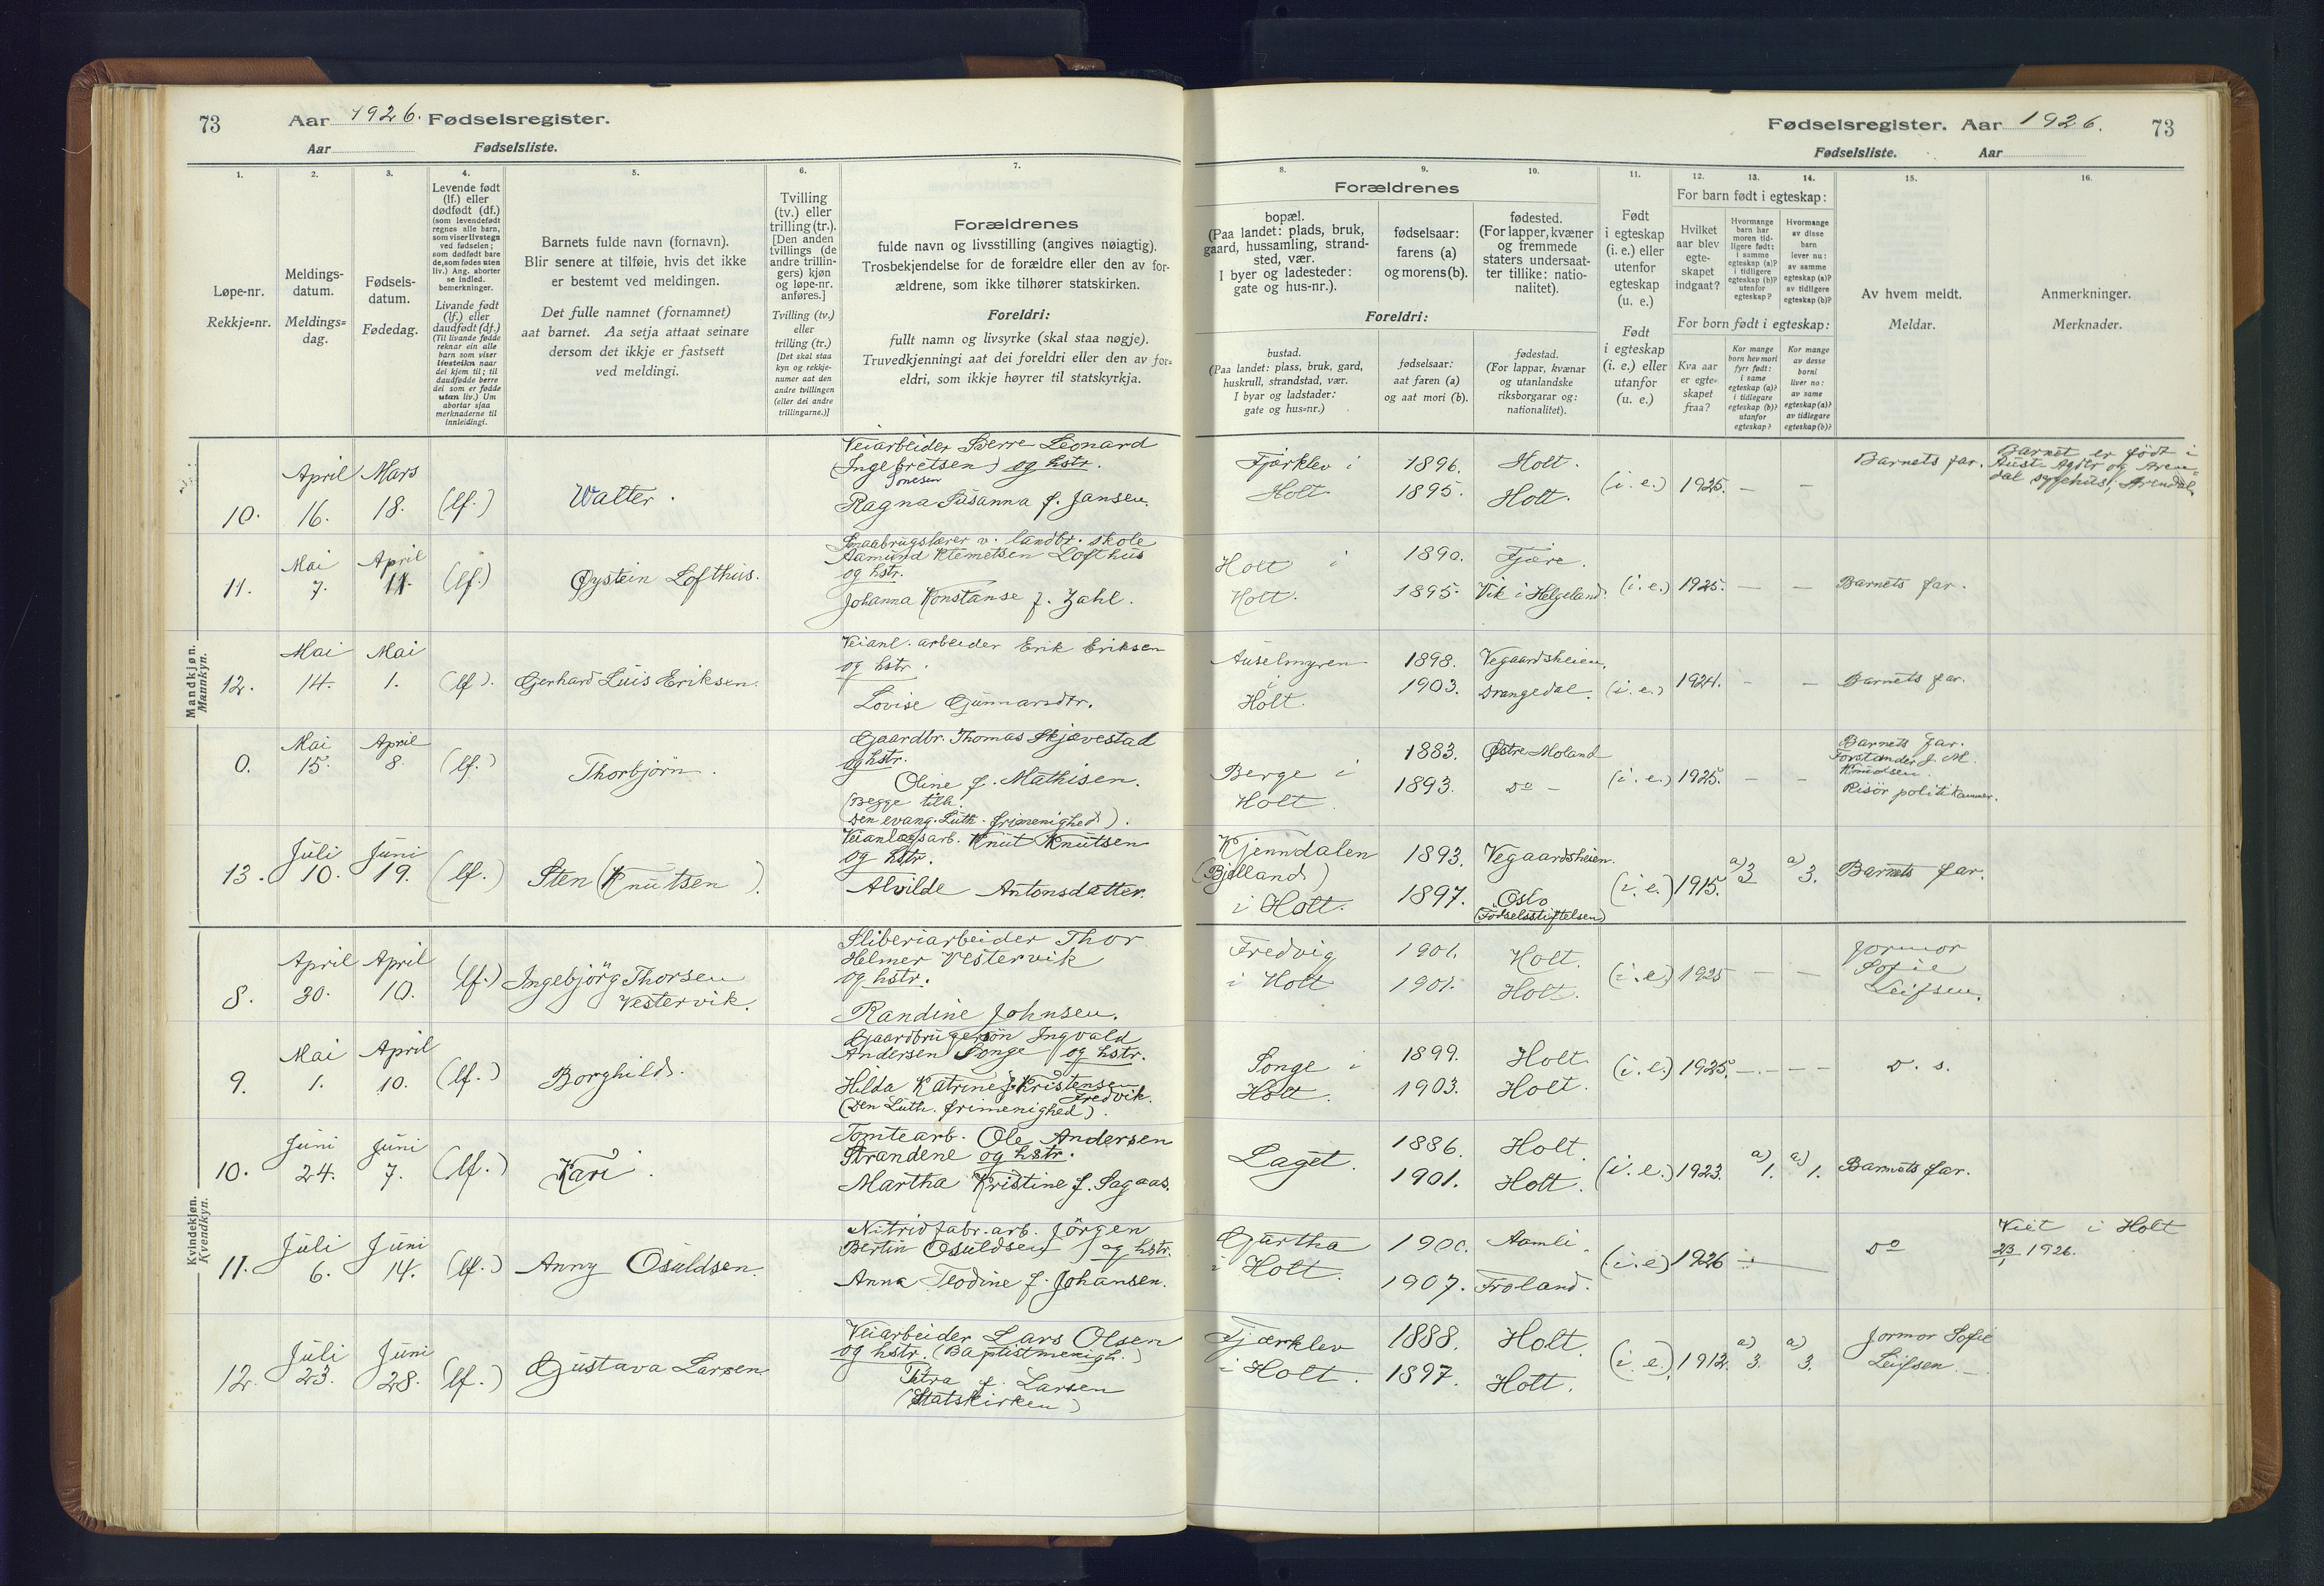 73 Aar 1926. Fødselsregister.
Aar Fødselsliste.
1. 2. 3. 4. 5. 6. 7.
Løpe-nr.
Rekkje=nr.
Meldings-
datum.
Meldings=
dag.
Fødsels-
datum.
Fødedag.
Levende født
(lf.) eller
dødfødt (df.)
(som levendefødt
regnes alle barn,
som viser livstegn
ved fødselen;
som dødfødt bare
de, som fødes uten
liv.) Ang. aborter
se indled.
bemerkninger.
Livande født
(lf.) eller
daudfødt (df.)
(Til livande fødde
reknar ein alle
barn som viser
livsteikn naar
dei kjem til; til
daudfødde berre
dei som er fødde
utan liv.) Um
abortar sjaa
merknaderne til
innleidingi.
Barnets fulde navn (fornavn).
Blir senere at tilføie, hvis det ikke
er bestemt ved meldingen.
Det fulle namnet (fornamnet)
aat barnet. Aa setja attaat seinare
dersom det ikkje er fastsett
ved meldingi.
Tvilling
(tv.) eller
trilling (tr.).
[Den anden
tvillings (de
andre trillin-
gers) kjøn
og løpe-nr.
anføres.]
Tvilling (tv.)
eller
trilling (tr.)
[Det skal staa
kyn og rekkje-
numer aat den
andre tvillingen
(eller dei andre
trillingarne.)]
Forældrenes
fulde navn og livsstilling (angives nøiagtig).
Trosbekjendelse for de forældre eller den av for-
ældrene, som ikke tilhører statskirken.
Foreldri:
fullt namn og livsyrke (skal staa nøgje).
Truvedkjenningi aat dei foreldri eller den av for=
eldri, som ikkje høyrer til statskyrkja.
Mandkjøn.
Mannkyn.
10. April 16. Mars 18. (lf.) Walter.
Veiarbeider Sverre Leonard
Ingebretsen og hstr.
Ragna Susanna f. Jansen.
11. Mai 7. April 11. (lf.) Øystein Lofthus.
Smaabrugslærer v. landbr. skole
Aamund Klemetsen Lofthus
og hstr.
Johanna Konstanse f. Zahl.
12. Mai 14. Mai 1. (lf). Gerhard Luis Eriksen.
Veianl. arbeider Erik Eriksen
og hstr.
Lovise Gunnarsdtr.
0. Mai 15. April 8. (lf.) Thorbjörn.
Gaardbr. Thomas Skjævestad
og hstr.
Oline f. Mathisen.
(Begge tilh.
Den evang. Luth. frimenighed).
13. Juli 10. Juni 19. (lf.) Sten (Knutsen).
Veianlægsarb. Knut Knutsen
og hstr.
Alvilde Antonsdatter.
Kvindekjøn.
Kvendkyn.
8. April 30. April 10. (lf.) Ingebjörg Thorsen
Vestervik.
Sliberiarbeider Thor
Helmer Vestervik
og hstr.
Randine Johnsen.
9. Mai 1. April 10. (lf.) Borghild.
Gaardbrugersön Ingvald
Andersen Songe og hstr.
Hilda Katrine f. Kristensen
Fredvik.
(Den Luth. frimenighed).
10. Juni 24. Juni 7. (lf.) Kari.
Tomtearb. Ole Andersen
Strandene og hstr.
Martha Kristine f. Sagaas.
11. Juli 6. Juni 14. (lf.) Anny Osuldsen.
Nitridfabr. arb. Jörgen
Bertin Osuldsen og hstr.
Anna Teodine f. Johansen.
12. Juli 23. Juni 28. (lf.) Gustava Larsen.
Veiarbeider Lars Olsen
og hstr. (Baptistmenigh.)
Petra f. Larsen
(Statskirken)
Fødselsregister. Aar 1926. 73
Fødselsliste. Aar
8. 9. 10. 11. 12. 13. 14. 15. 16.
Forældrenes
bopæl.
(Paa landet: plads, bruk,
gaard, hussamling, strand-
sted, vær.
I byer og ladesteder:
gate og hus-nr.).
fødselsaar:
farens (a)
og morens (b).
fødested.
(For lapper, kvæner
og fremmede
staters undersaat-
ter tillike: natio-
nalitet).
Foreldri:
bustad.
(Paa landet: plass, bruk, gard,
huskrull, strandstad, vær.
I byar og ladstader:
gate og hus=nr.)
fødselsaar:
aat faren (a)
og aat mori (b).
fødestad.
(For lappar, kvænar
og utanlandske
riksborgarar og:
nationalitet).
Født
i egteskap
(i. e.) eller
utenfor
egteskap
(u. e.)
Født
i egteskap
(i. e.) eller
utanfor
(u. e.)
For barn født i egteskap:
Hvilket
aar blev
egte-
skapet
indgaat?
Hvormange
barn har
moren tid-
ligere født:
i samme
egteskap (a)?
i tidligere
egteskap (b)?
utenfor
egteskap?
Hvormange
av disse
barn
lever nu:
av samme
egteskap (a)?
av tidligere
egteskap (b)?
For born født i egteskap:
Kva aar
er egte-
skapet
fraa?
Kor mange
born hev mori
fyrr født:
i same
egteskap (a)?
i tidlegare
egteskap (b)?
utanfor
egteskap?
Kor mange
av desse
borni
liver no:
av same
egteskap (a)?
av tidlegare
egteskap (b)?
Av hvem meldt.
Meldar.
Anmerkninger.
Merknader.
Fjærklev i
Holt.
1896. Holt.
1895. Holt.
(i. e.) 1925. — — Barnets far.
Barnet er födt i
Aust-Agder og Aren=
dal sygehus, Arendal.
Holt i
Holt.
1890. Fjære.
1895. Vik i Helgeland.
(i. e.) 1925. — — Barnets far.
Auselmyren
i
Holt.
1898. Vegaardsheien.
1903. Drangedal.
(i. e.) 1924. — — Barnets far.
Berge i
Holt.
1883. Østre Moland
1893. Do —
(i. e.) 1925. — —
Barnets far.
Forstander J. M.
Knudsen.
Risör politikammer.
Kjenndalen
(Bjelland)
i Holt.
1893. Vegaardsheien.
1897. Oslo
(Fødselsstiftelsen)
(i. e.) 1915. a) 3 a) 3. Barnets far.
Fredvig
i Holt
1901. Holt.
1901. Holt.
(i. e.) 1925 — —
Jormor
Sofie
Leifsen.
Songe i
Holt.
1899. Holt
1903. Holt.
(i. e.) 1925. — — D. s.
Laget.
1886. Holt.
1901. Holt.
(i. e.) 1923. a) 1. a) 1. Barnets far.
Gurtha
i Holt.
1900. Aamli.
1907. Froland.
(i. e) 1926 — Do
Viet i Holt
1926.
Fjærklev
i Holt.
1888. Holt.
1897. Holt.
(i. e.) 1912. a) 3. a) 3.
Jormor Sofie
Leifsen.